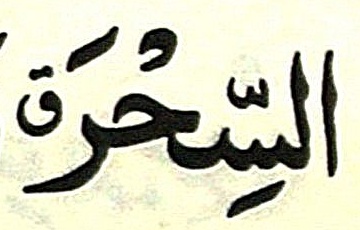 السِّحْرَة